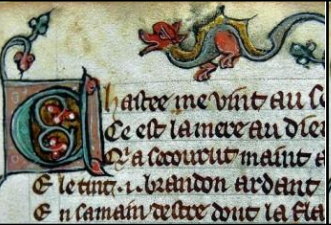 Chastee me vint au se
Ce est la mere au dieu
Qi a secourut maint a
E le tint .i. brandon ardant
E n sa main destre dont la fla